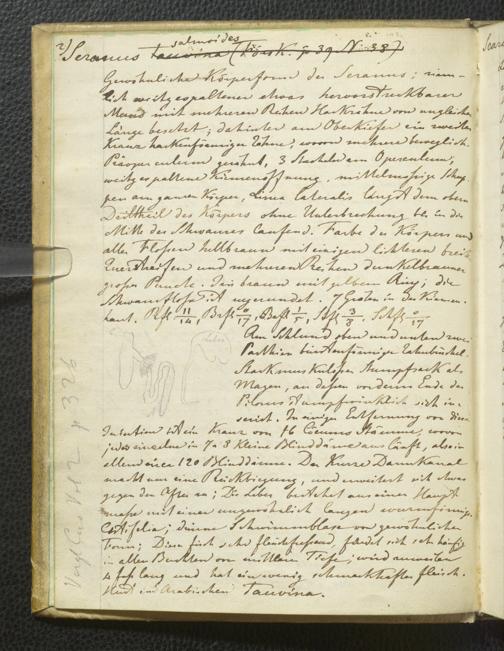 2) Seranus salmoides
tauvina (Forsk. p 39 N. 38)
Gewöhnliche Körperform des Seranus; näm-
lich weitgespaltener etwas hervorstreckbarer
Mund mit mehreren Reihen Hackzähne von ungleicher
Länge besetzt; dahinter am Oberkiefer ein zweiter
Kranz Zähne, wovon mehrere beweglich.
Präoperculum gezähnt, 3 Stacheln am Operculum,
weitgespaltene Kiemenöffnung, mittelmässige Schup-
pen am ganzen Körper, Linea lateralis längst dem obern
Drittheil des Körpers ohne Unterbrechung bis in die
Mitte des Schwanzes laufend. Farbe des Körpers und
aller Flossen hellbraun mit einigen lichteren breiten
Querstreifen und mehreren Reihen dunkelbrauner
grosser Punkte. Iris braun mit gelbem Ring; die
Schwanzflosse ist abgerundet. 7 Gräten in der Kiemen-
haut. Rfl 11/14, Brfl 0/17, Bfl 1/5, Afl 3/8, Schfl 0/17
Am Schlund oben und unten zwei
Parthien Zahnbüschel.
Stark muskulöser stumpfer Sack als
Magen, an dessen vorderm Ende der
Pilorus sich in-
serirt. In einiger Entfernung von diesem
ist ein Kranz von 16 Coecums Stämme, wovon
jedes einzelne in 7 a 8 kleine Blinddärme ausläuft, also in
allem circa 120 Blinddärme. Der kurze Darmkanal
macht nur eine Rückbiegung, und erweitert sich etwas
gegen den After zu; Die Leber besteht aus einer Haupt
masse mit einer ungewöhnlich langen wurmförmigen
dünne Schwimmblase von gewöhnlicher
Form; Dieser Fisch sehr fleischfressend, findet sich sehr häufig
in allen Buchten von mittlerer Tiefe; wird zuweilen
4 Fuss lang und hat ein wenig schmackhaftes Fleisch.
Heist im Arabischen Tauvina.
Leber
Vol 2 p 326